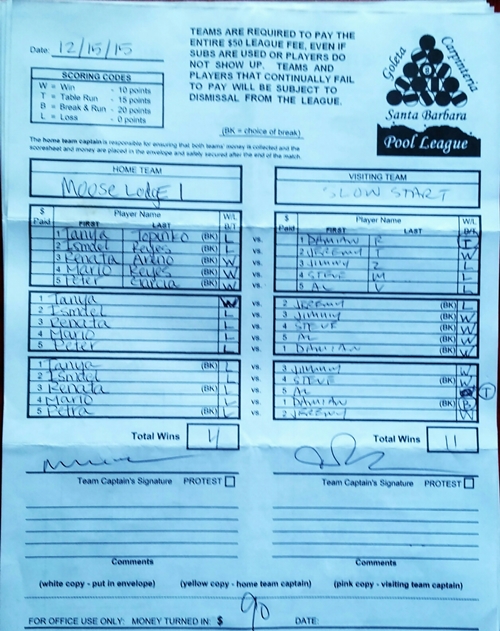 Date: 12/15/15
TEAMS ARE REQUIRED TO PAY THE
ENTIRE $50 LEAGUE FEE, EVEN IF
SUBS ARE USED OR PLAYERS DO
NOT SHOW UP. TEAMS AND
PLAYERS THAT CONTINUALLY FAIL
TO PAY WILL BE SUBJECT TO
DISMISSAL FROM THE LEAGUE.
Goleta Carpinteria
Santa Barbara
Pool League
SCORING CODES
W = Win - 10 points
T = Table Run - 15 points
B = Break & Run - 20 points
L = Loss - 0 points
(BK = choice of break)
The home team captain is responsible for ensuring that both teams' money is collected and the
scoresheet and money are placed in the envelope and safely secured after the end of the match.
HOME TEAM VISITING TEAM
Moose Lodge 1 SLOW START
$ Paid Player Name FIRST LAST W/L B/T $ Paid Player Name FIRST LAST W/L B/T
1 Tanya (BK) L vs. 1 DAMIAN R T
2 Ismael Reyes (BK) L vs. 2 JEREMY T W
3 Renata (BK) W vs. 3 JIMMY Z L
4 Mario Reyes (BK) W vs. 4 STEVE M L
5 Peter Garcia (BK) W vs. 5 AL V L
1 Tanya W vs. 2 JEREMY (BK) L
2 Ismael L vs. 3 JIMMY (BK) W
3 Renata L vs. 4 STEVE (BK) W
4 Mario L vs. 5 AL (BK) W
5 Peter L vs. 1 DAMIAN (BK) W
1 Tanya (BK) L vs. 3 JIMMY W
2 Ismael L vs. 4 STEVE (BK) W
3 Renata (BK) L vs. 5 AL T
4 Mario L vs. 1 DAMIAN (BK) B
5 Petra (BK) L vs. 2 JEREMY W
Total Wins 4 Total Wins 11
Team Captain's Signature PROTEST Team Captain's Signature PROTEST
Comments Comments
(white copy - put in envelope) (yellow copy - home team captain) (pink copy - visiting team captain)
FOR OFFICE USE ONLY: MONEY TURNED IN: $ 90 DATE: